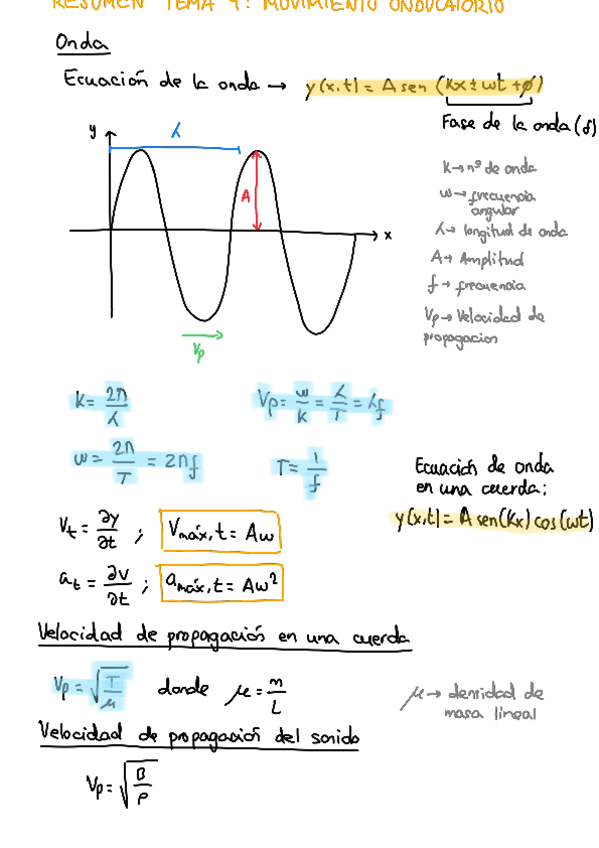 RESUMEN TEMA 4: MOVIMIENTO ONDULATORIO
Onda
Ecuación de la onda → y(x,t) = A sen (Kx ± wt + φ)
Fase de la onda (δ)
y
λ
A
x
Vp
K → nº de onda
w → frecuencia angular
λ → longitud de onda
A → Amplitud
f → frecuencia
Vp → Velocidad de propagacion
K = 2π/λ
Vp = w/K = λ/T = λf
w = 2π/T = 2πf
T = 1/f
Ecuación de onda
en una cuerda:
y(x,t) = A sen(Kx) cos(wt)
Vt = ∂y/∂t ; Vmáx,t = Aw
at = ∂v/∂t ; amáx,t = Aw²
Velocidad de propagación en una cuerda
Vp = √(T/μ) donde μ = m/L
μ → densidad de
masa lineal
Velocidad de propagación del sonido
Vp = √(B/ρ)